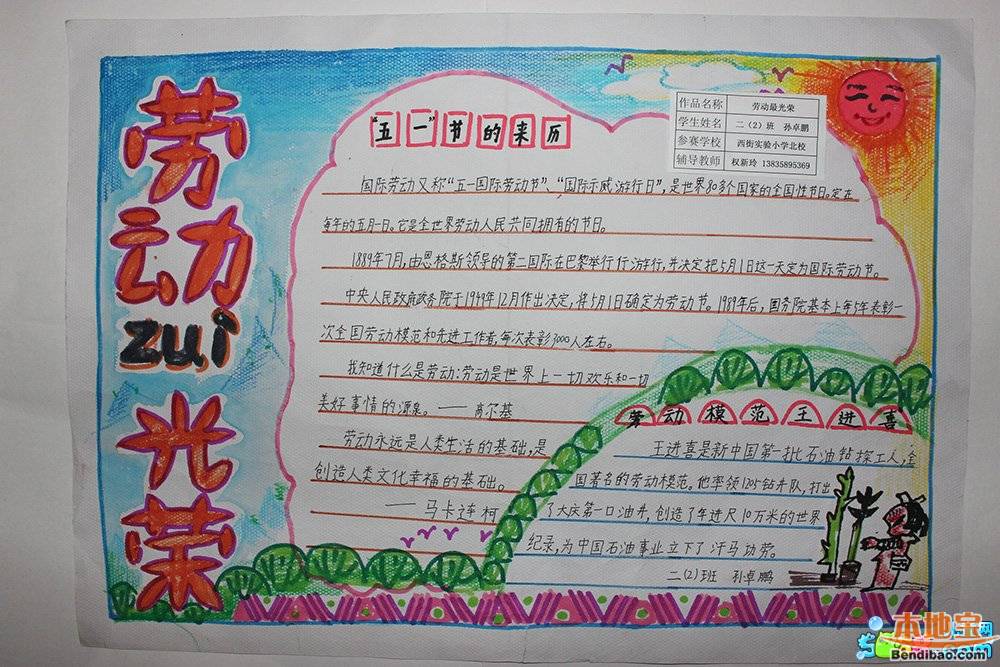 劳动zui光荣
作品名称 劳动最光荣
学生姓名 二（2）班 孙卓鹏
参赛学校 西街实验小学北校
辅导教师 权新玲 13835895369
“五一”节的来历
国际劳动又称“五一国际劳动节”、“国际示威游行日”，是世界80多个国家的全国性节日。定在
每年的五月一日。它是全世界劳动人民共同拥有的节日。
1889年7月，由恩格斯领导的第二国际在巴黎举行行游行，并决定把5月1日这一天定为国际劳动节。
中央人民政府政务院于1949年12月作出决定，将5月1日确定为劳动节。1989年后，国务院基本上每5年表彰一
次全国劳动模范和先进工作者，每次表彰3000人左右。
我知道什么是劳动：劳动是世界上一切欢乐和一切
美好事情的源泉。——高尔基
劳动永远是人类生活的基础，是
创造人类文化幸福的基础。
——马卡连柯
劳动模范王进喜
王进喜是新中国第一批石油钻探工人，全
国著名的劳动模范。他率领1205钻井队，打出
了大庆第一口油井，创造了年进尺10万米的世界
纪录，为中国石油事业立下了汗马功劳。
二（2）班 孙卓鹏
本地宝
Bendibao.com